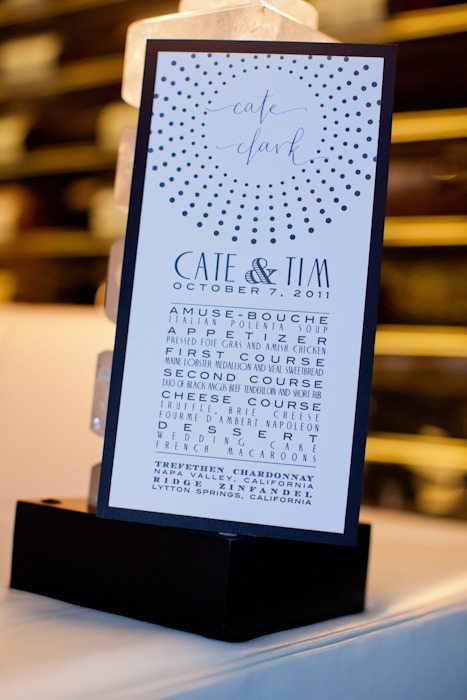 cate
clark
CATE & TIM
OCTOBER 7, 2011
AMUSE-BOUCHE
ITALIAN POLENTA SOUP
APPETIZER
PRESSED FOIE GRAS AND AMISH CHICKEN
FIRST COURSE
MAINE LOBSTER MEDALLION AND VEAL SWEETBREAD
SECOND COURSE
DUO OF BLACK ANGUS BEEF TENDERLOIN AND SHORT RIB
CHEESE COURSE
TRUFFLE, BRIE CHEESE
FOURME D'AMBERT NAPOLEON
DESSERT
WEDDING CAKE
FRENCH MACAROONS
TREFETHEN CHARDONNAY
NAPA VALLEY, CALIFORNIA
RIDGE ZINFANDEL
LYTTON SPRINGS, CALIFORNIA